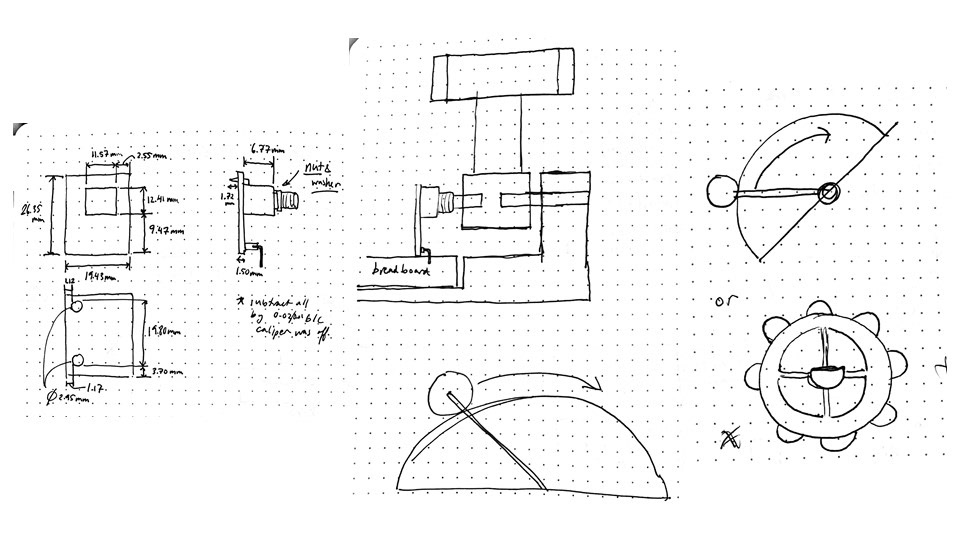 11.57mm
2.55mm
26.35
mm
12.41mm
9.47mm
19.43mm
6.77mm
nut &
washer
1.72
mm
1.50mm
* subtract all
by b/c
caliper was off.
1.12
19.80mm
3.70mm
1.17
Ø2.95mm
breadboard
or